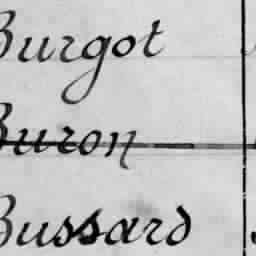 Burgot
Buron
Bussard